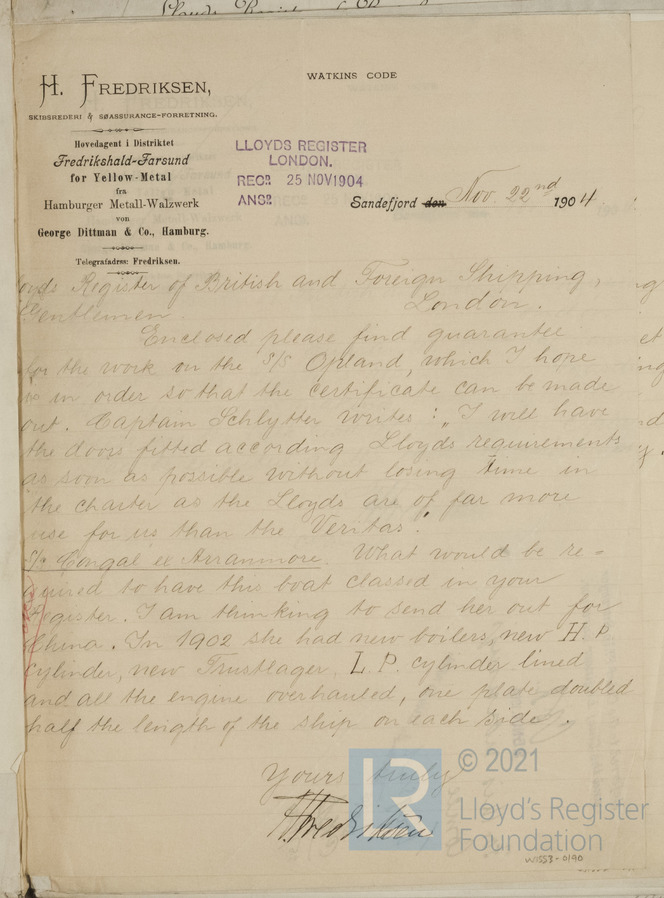 WATKINS CODE
H. FREDRIKSEN,
SKIBSREDERI & SØASSURANCE-FORRETNING.
Hovedagent i Distriktet
Fredrikshald-Farsund
for Yellow-Metal
fra
Hamburger Metall-Walzwerk
von
George Dittman & Co., Hamburg.
Telegrafadres: Fredriksen.
LLOYDS REGISTER
LONDON.
RECD. 25 NOV 1904
ANSD.
Sandefjord den Nov. 22nd 1904.
oyds Register of British and Foreign Shipping,
London.
Gentlemen.
Enclosed please find guarantee
for the work on the S/S Opland, which I hope
is in order so that the certificate can be made
out. Captain Schlytter writes: "I will have
the doors fitted according Lloyds requirements
as soon as possible without losing time in
the charter as the Lloyds are of far more
use for us than the Veritas."
S/S Congal ex Arranmore. What would be re=
quired to have this boat classed in your
Register. I am thinking to send her out for
China. In 1902 she had new boilers, new H.P
cylinder, new Trustlager, L.P. cylinder lined
and all the engine overhauled, one plate doubled
half the length of the ship on each side.
Yours truly
HFredriksen
© 2021
LR
Lloyd's Register
Foundation
W1553-0190